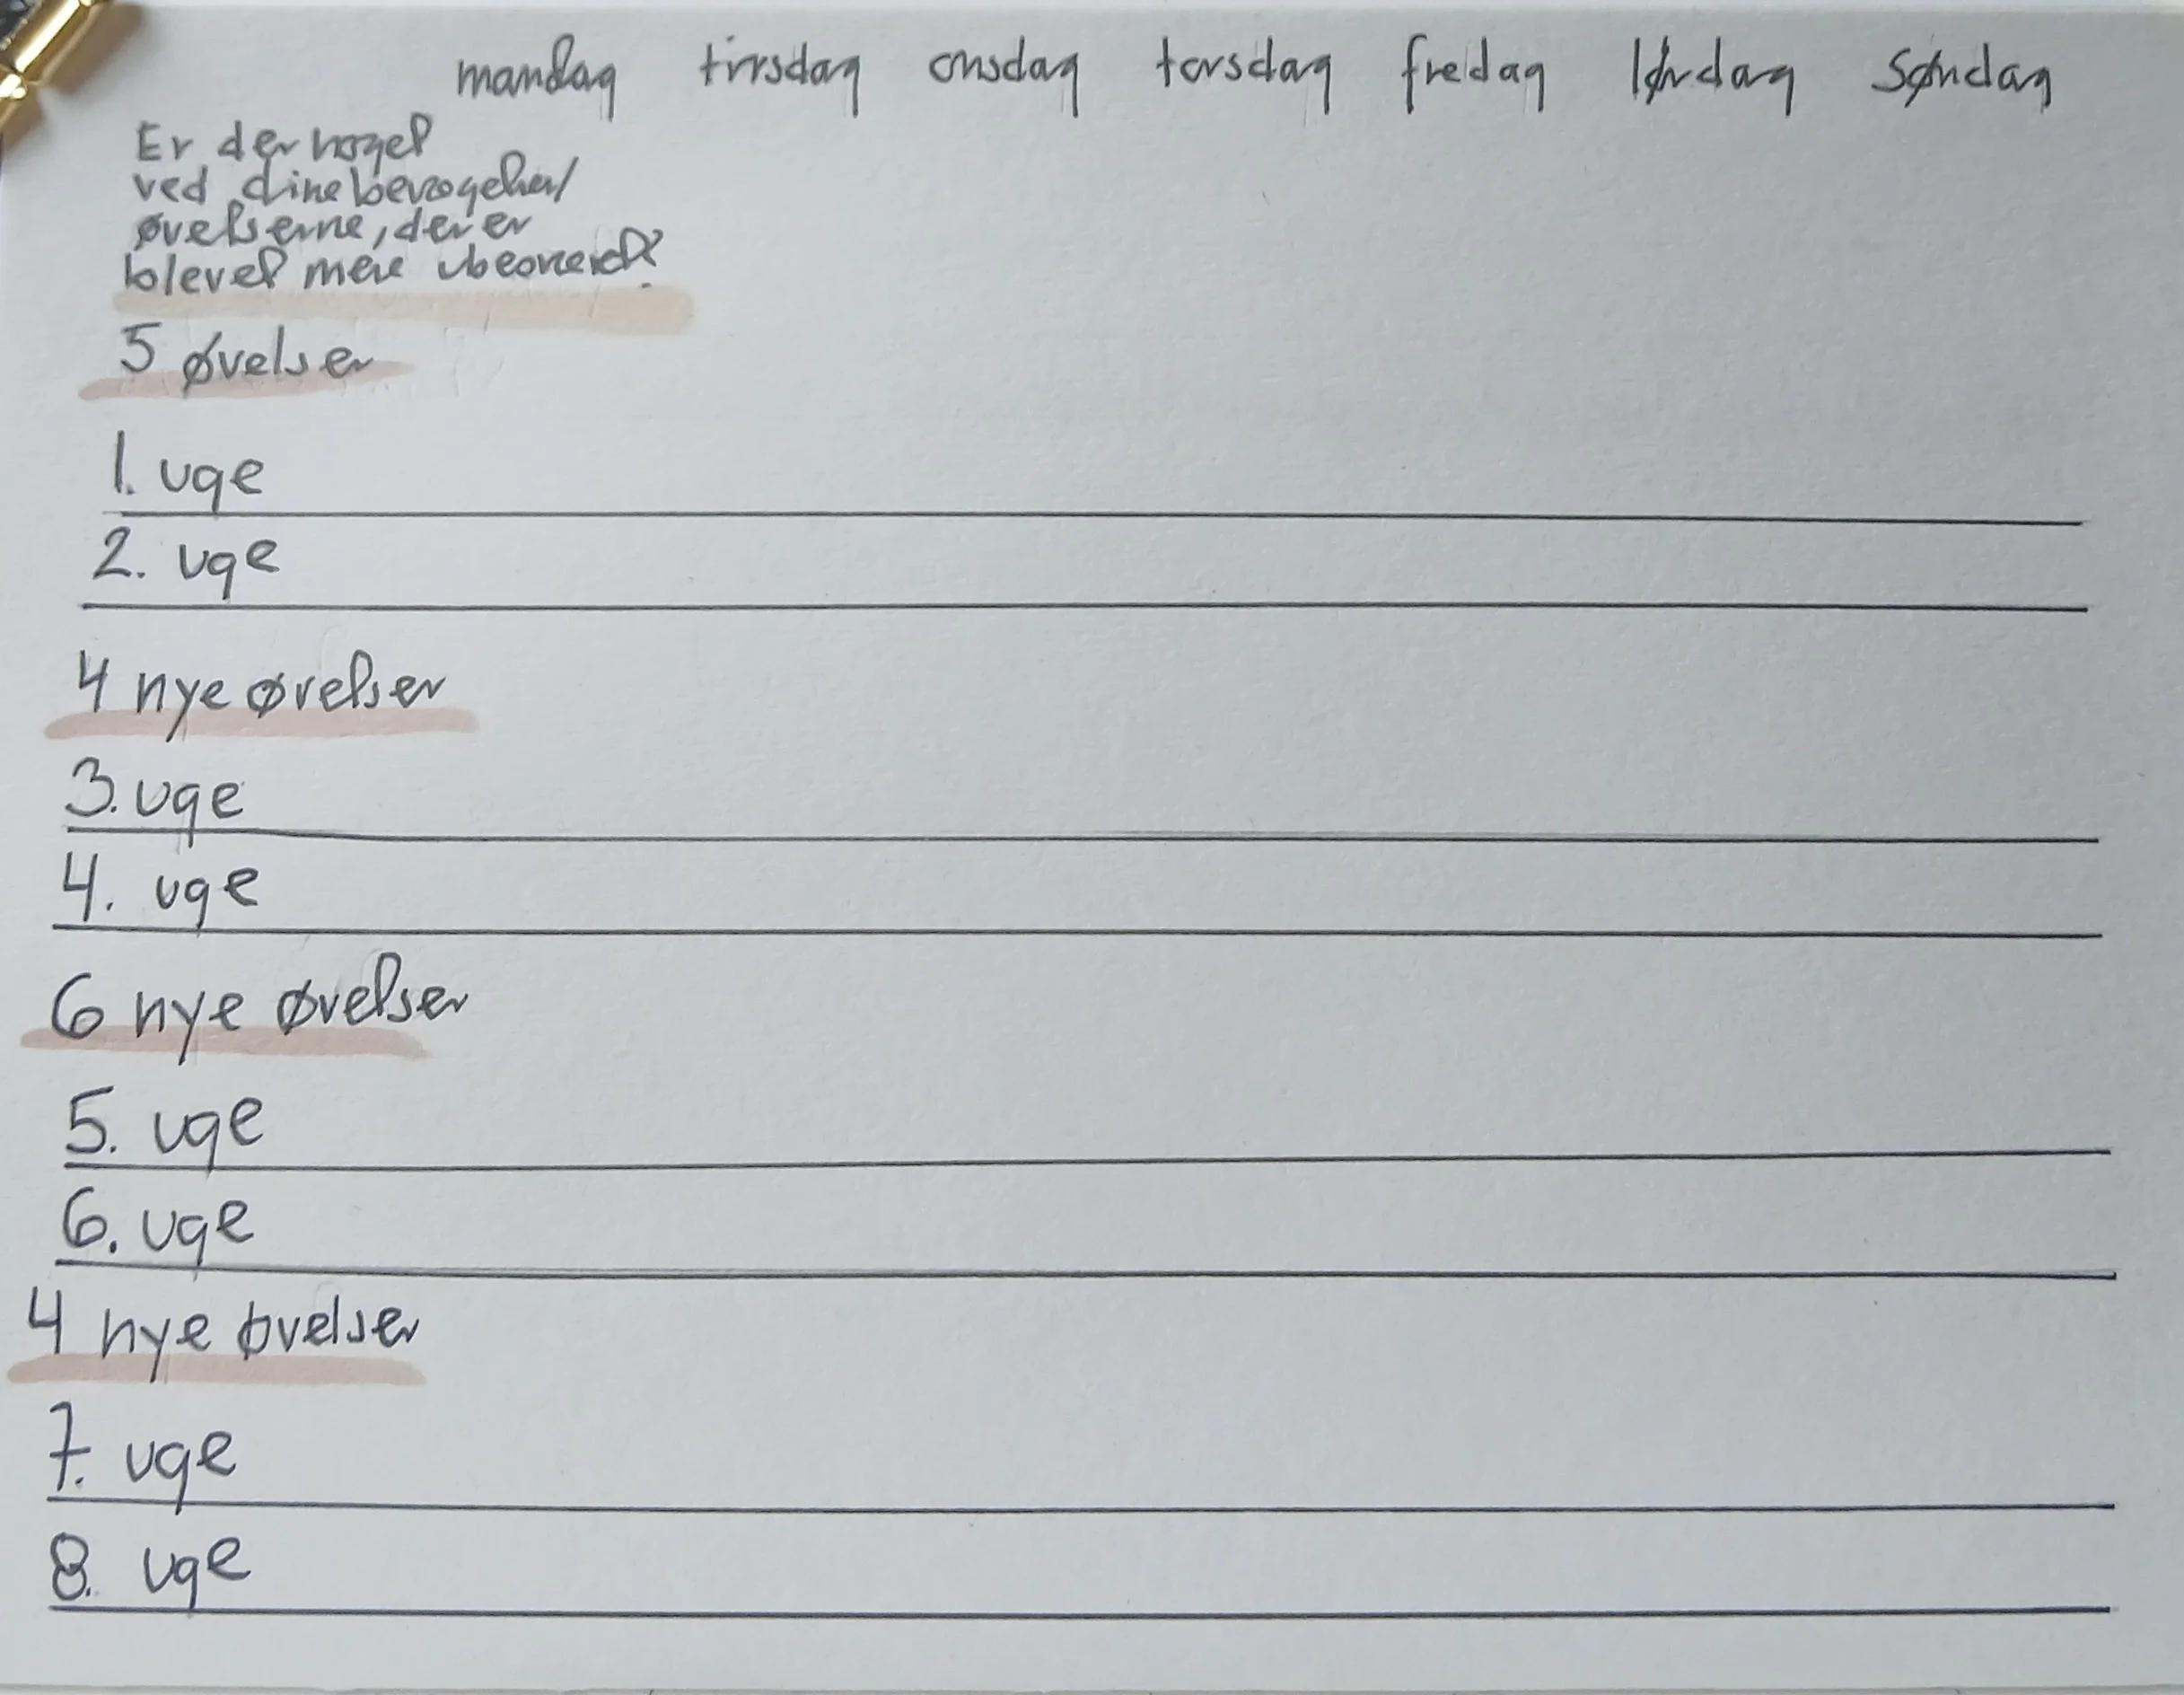 mandag tirsdag onsdag torsdag fredag lørdag søndag
Er der noget
ved dine bevægelser/
øvelserne, der er
blevet mere ubesværet?
5 øvelser
1. uge
2. uge
4 nye øvelser
3. uge
4. uge
6 nye øvelser
5. uge
6. uge
4 nye øvelser
7. uge
8. uge